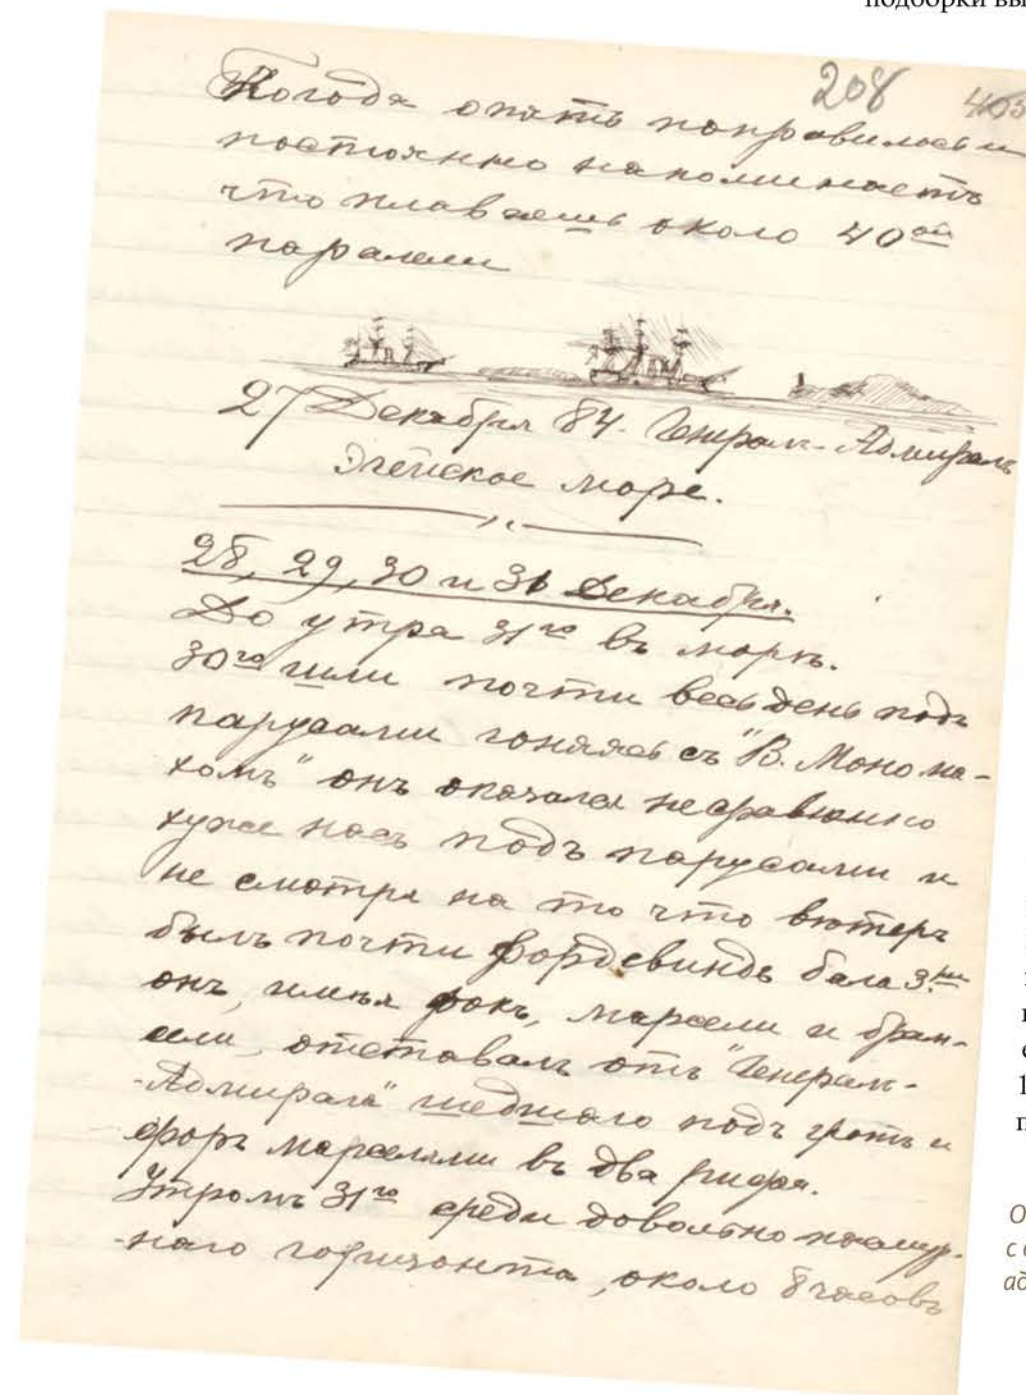 подборки вы
208
405
Погода опять поправилась и
постоянно напоминаетъ
что плаваешь около 40ой
паралели
27 Декабря 84. Генерал-Адмиралъ
Эгейское море.
28, 29, 30 и 31 Декабря.
До утра 31го въ морѣ.
30го шли почти весь день подъ
парусами гоняясь съ "В. Монома-
хомъ" онъ оказался несравненно
хуже насъ подъ парусами и
не смотря на то что вѣтеръ
былъ почти фордевиндъ бала 3.
онъ, имѣя фокъ, марсели и брам-
сели, отставалъ отъ "Генерал-
-Адмирала" шедшаго подъ гротъ и
форъ марселями въ два рифа.
Утромъ 31го среди довольно пасмур-
-наго горизонта, около 8 часовъ
О
с
ад